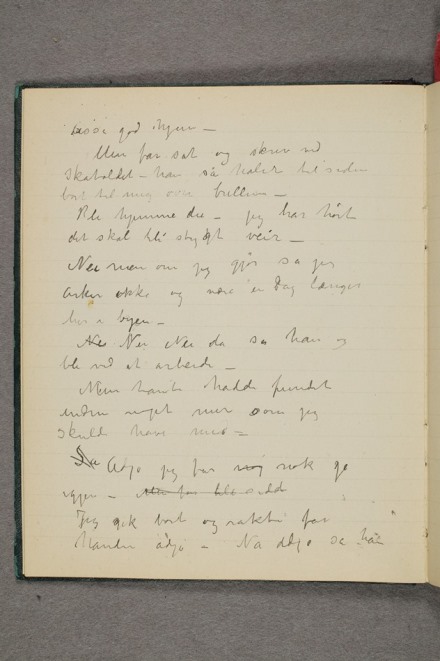 god hjem —
Men far sat og skrev ved
Skatollet — han så halvt til siden
bort til mig over brillen —
Bli hjemme du — jeg har hørt
det skal bli stygt veir —
Nei men om jeg gjør sa jeg
ikke og være en dag længer
her i byen —
Nei Nei da sa han og
ble ved at arbeide —
hadde fundet
noget mer som jeg
skulde have med —
Adjø jeg får nok gå
igjen —
Jeg gik bort og rakte far
Handen adjø — Nå adjø sa han